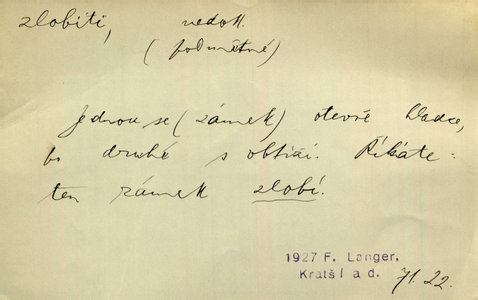 zlobiti, nedok.
(podmětné)
Jednou se (zámek) otevře hladce,
po druhé s obtíží. Říkáte:
ten zámek zlobí.
1927 F. Langer,
Kratší a d. 71.22.